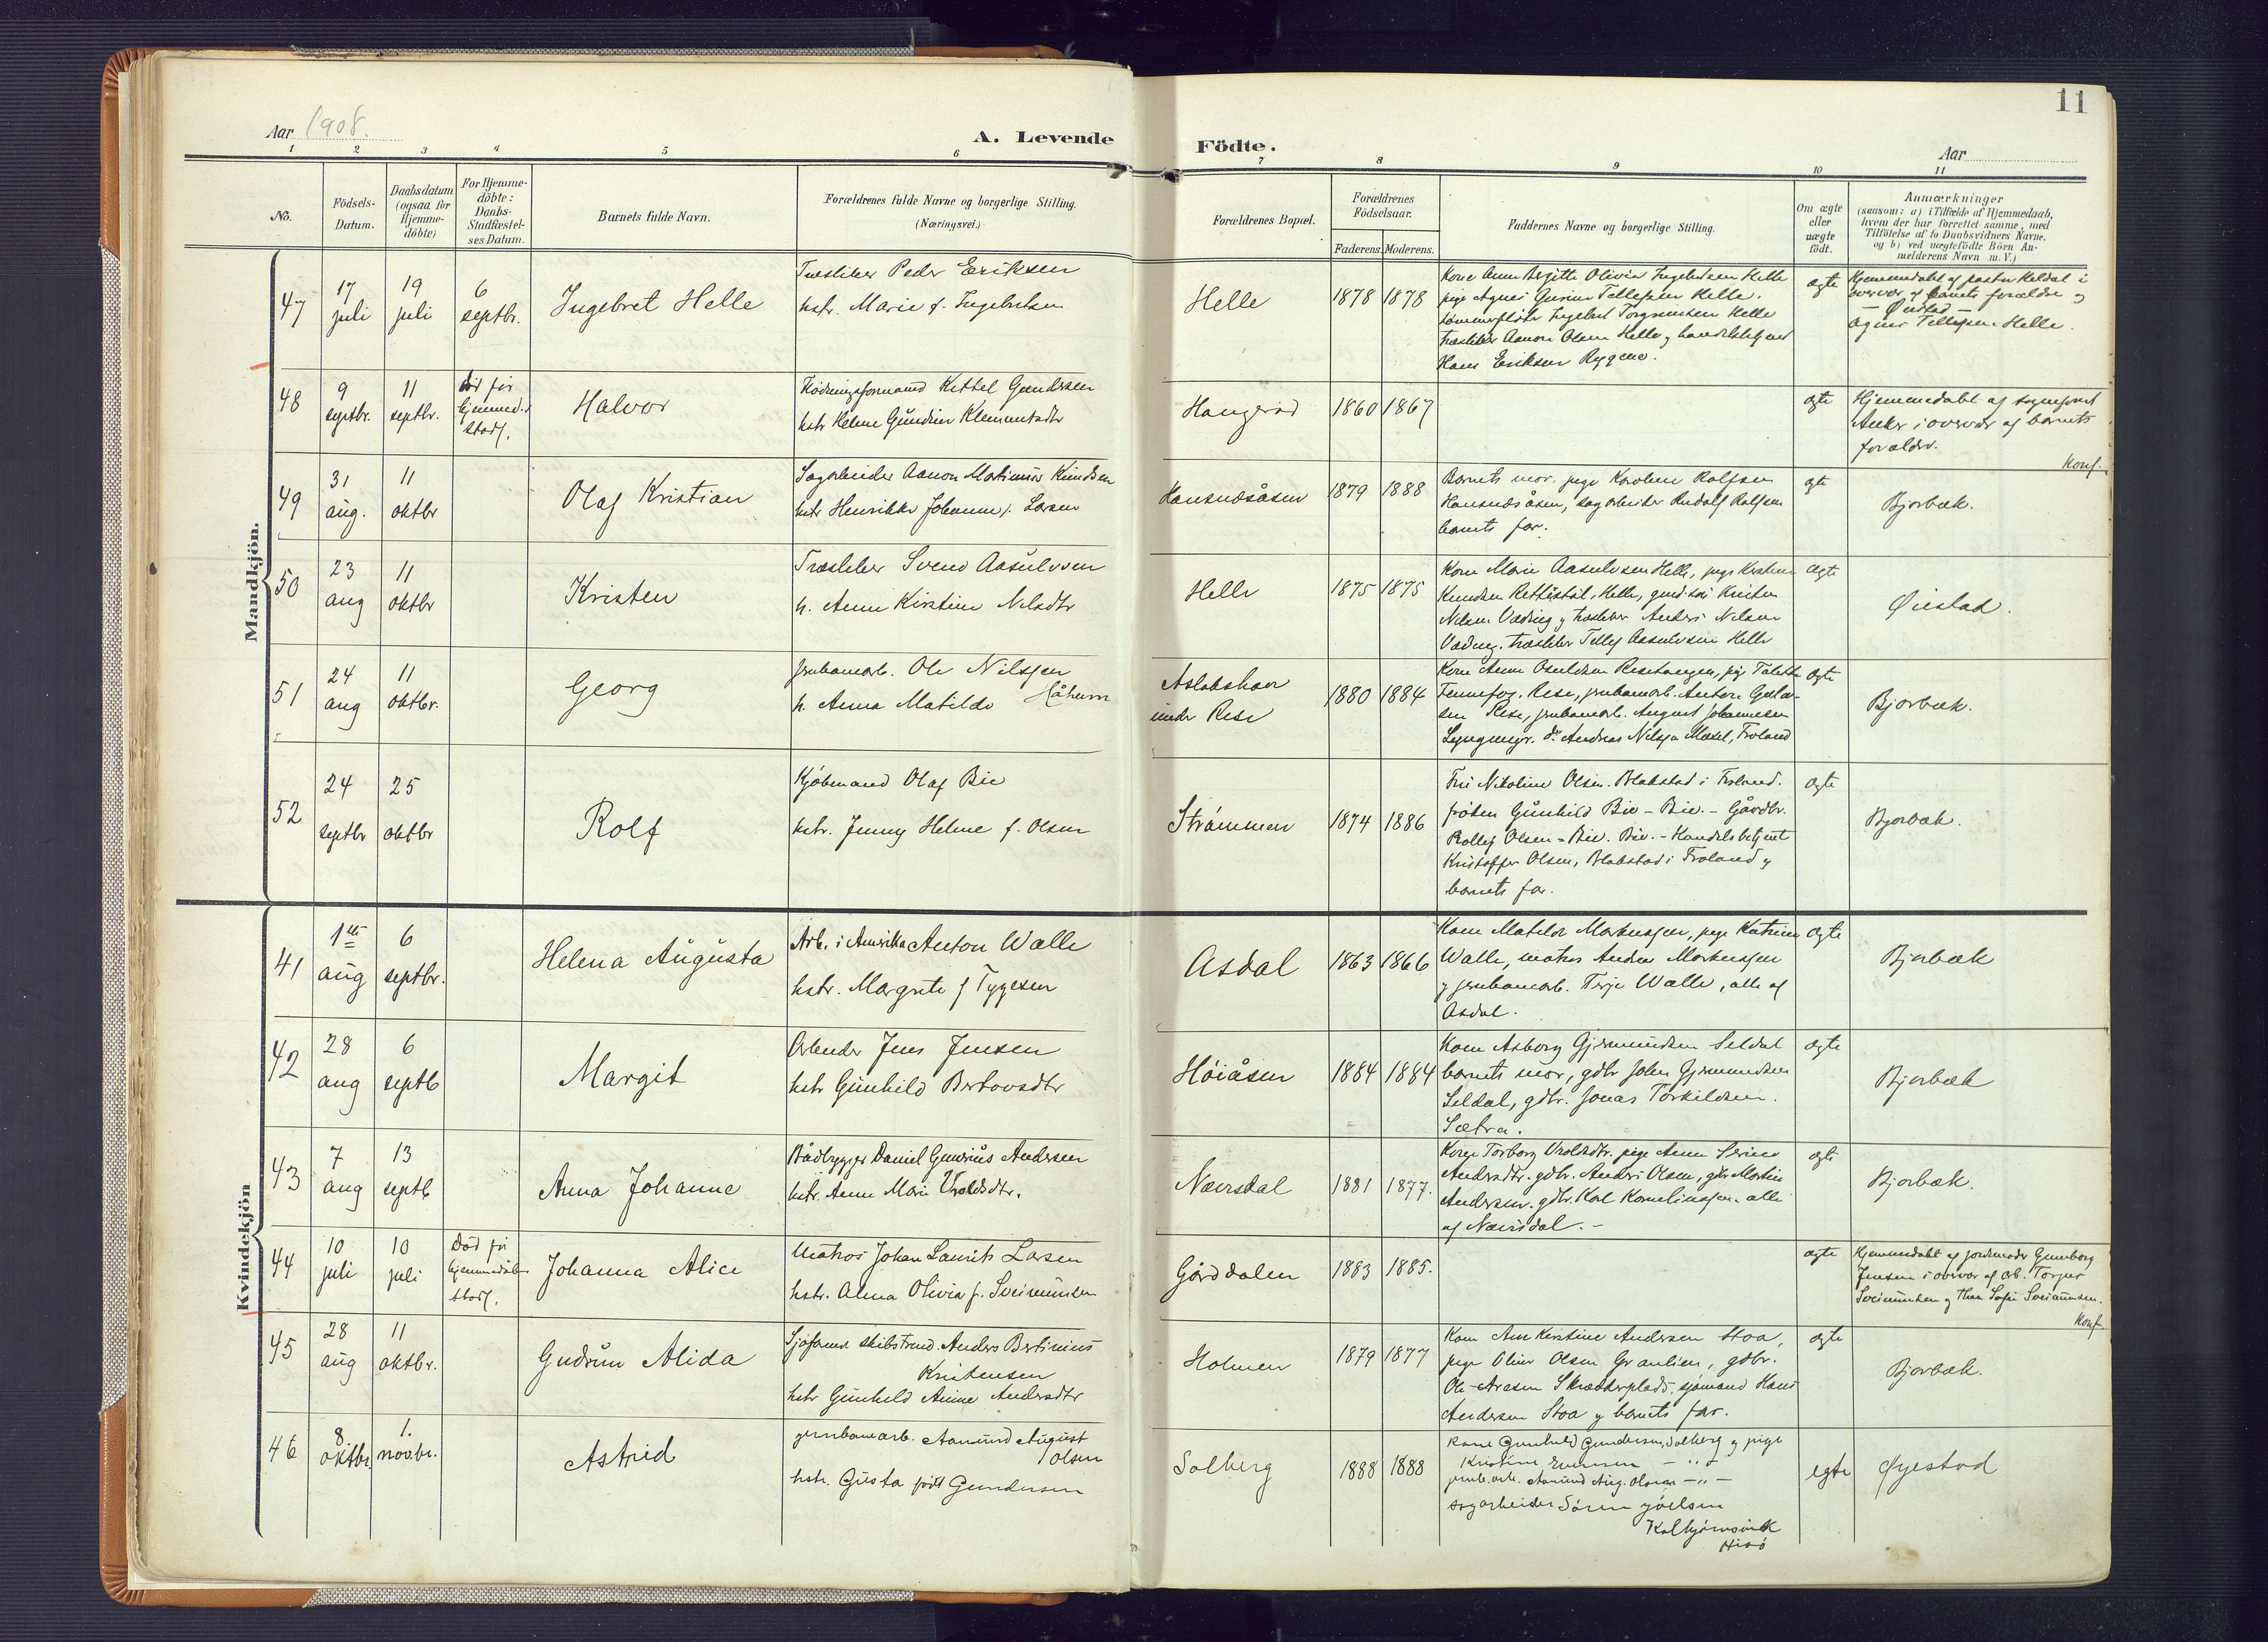 11
Aar 1908.
A. Levende Födte.
Aar
1 2 3 4 5 6 7 8 9 10 11
No.
Födsels-Datum.
Daabsdatum (ogsaa for Hjemme-döbte)
For Hjemme-döbte: Daabs-Stadfæstel-ses Datum.
Barnets fulde Navn.
Forældrenes fulde Navne og borgerlige Stilling.
(Næringsvei.)
Forældrenes Bopæl.
Forældrenes Födselsaar.
Faderens. Moderens.
Faddernes Navne og borgerlige Stilling.
Om ægte eller uægte födt.
Anmærkninger
(saasom: a) i Tilfælde af Hjemmedaab,
hvem der har forrettet samme, med
Tilföielse af to Daabsvidners Navne,
og b) ved uægtefödte Börn An-
melderens Navn m. V.)
Mandkjön.
47 17 juli 19 juli 6 septbr. Ingebret Helle
Peder Eriksen
hstr. Marie f. Ingebretsen
Helle 1878 1878
Kone Anne Birgitte Olivia Ingebretsen Helle
pige Agnes Gurine Tellefsen Helle.
Ingebret Torgrimsen Helle
Aanon Olsen Helle, handelsbetjent
Hans Eriksen Rygene.
ægte
Hjemmedøbt af pastor Heldal i
overvær af barnets forældre og
— Øiestad —
Agnes Tellefsen Helle.
48 9 septbr. 11 septbr. død før hjemmed. stadf. Halvor
Fløtningsformand Kittel Gundersen
hstr Helene Gundine Klemmetsdtr
Haugerød 1860 1867
ægte
Hjemmedøbt af sogneprest
Anker i overvær af barnets
forældre.
Konf.
49 31 aug. 11 oktbr Olaf Kristian
Sagarbeider Aanon Martinius Knudsen
hstr Henrikke Johanne f. Larsen
Hansnesåsen 1879 1888
Barnets mor, pige Karoline Rolfsen
Hansnesåsen, sagarbeider Rudolf Rolfsen
barnets far.
ægte
Bjorbæk.
50 23 aug 11 oktbr Kristen
Svend Aasulvsen
h. Anne Kirstine Nilsdtr
Helle 1875 1875
Kone Marie Aasulvsen Helle, pige Kirstine
Knudsen Helle,
Nilsen Vædring Anders Nilsen
Vædring, Tellef Aasulvsen Helle
ægte
Øiestad.
51 24 aug 11 oktbr. Georg
jernbanearb. Ole Nilssen
h. Anna Matilde Håhum
under Rise
1880 1884
Kone Anne Osuldsen pige
Rise, jernbanearb. Anton
Rise, jernbanearb. August Johannesen
do Andreas Nilssen Froland
ægte
Bjorbæk.
52 24 septbr 25 oktbr Rolf
Kjøbmand Olaf Bie
hstr. Jenny Helene f. Olsen
Strømmen 1874 1886
Fru Nikoline Olsen. Blakstad i Froland.
frøken Gunhild Bie – Bie. – Gårdbr.
Rollef Olsen – Bie. Bie. – Handelsbetjent
Kristoffer Olsen, Blakstad i Froland og
barnets far.
ægte
Bjorbæk.
Kvindekjön
41 1ste aug 6 septbr. Helena Augusta
Arb. i Amerika Anton Walle
hstr. Margrete f Tygesen
Asdal 1863 1866
Kone Matilde Markussen, pige Katrine
Walle, matros Andrea Markussen
og jernbanearb. Terje Walle, alle af
Asdal.
ægte
Bjorbæk
42 28 aug 6 septb Margit
Arbeider Jens Jensen
hstr Gunhild
Høiåsen 1884 1884
Kone Asborg Gjermundsen Seldal
barnets mor, gdbr John Gjermundsen
Seldal, gdbr. Jonas Torkildsen.
Sætra.
ægte
Bjorbæk
43 7 aug 13 septb Anna Johanne
Bådbygger Daniel Gunerius Andersen
hstr. Anne Marie Uroldsdtr.
Næversdal 1881 1877.
Kone Torborg Uroldsdtr. pige Anne Serine
Andersdtr. gdbr. Anders Olsen, gdbr. Martin
Andersen. gdbr. Karl Korneliussen. alle
af Næversdal. –
ægte
Bjorbæk.
44 10 juli 10 juli Død før hjemmedåbens stadf. Johanna Alice
Matros Johan Laurits Larsen
hstr. Alma Olivia f. Sveinunsen
Gårddalen 1883 1885.
ægte
Hjemmedøbt af jordmoder Gunborg
Jensen i overvær af arb. Torger
Sveinunsen og Thea Sofie Sveinunsen.
Konf.
45 28 aug 11 oktbr. Gudrun Alida
Anders Bertinius
Kristensen
hstr Gunhild Anine Andersdtr
Holmen 1879 1877
Kone Ane Kirstine Andersen Stoa,
pige Oline Olsen Granlien, gdbr.
Ole Aresen Skrædderplads, sjømand Hans
Andersen Stoa og barnets far.
ægte
Bjorbæk.
46 8. oktbr. 1. novbr. Astrid
jernbanearb. Aamund August
Olsen
hstr. Gusta født Gundersen
Solberg 1888 1888
Kone Gunhild Gundersen, Solberg og pige
Kristine — „ —
jernb. arb. Aamund Aug. Olsen — „ —
sagarbeider Søren Joelsen
Kolbjørnsvik
Hisø
egte
Øyestad